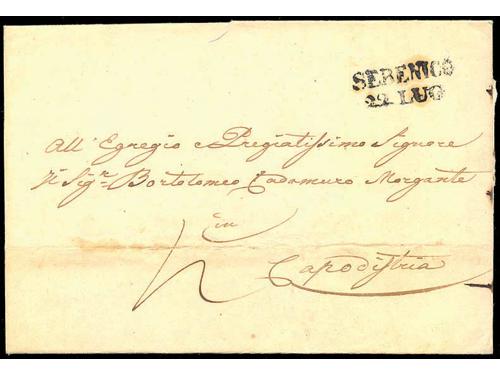 SEBENICO
22 LUG
All' Egregio e Pregiatissimo Signore
Il Sigr. Bortolomeo Cadamuro Morgante
in
Capodistria